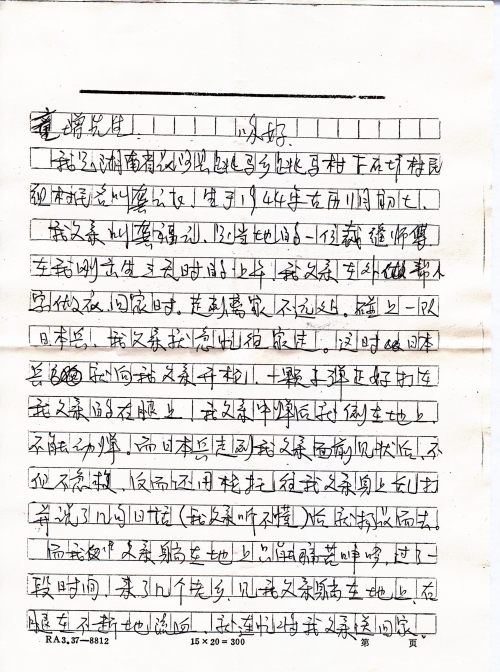 童增先生: 你好.
我是湖南省汉寿县跳马乡跳马村下石坊村民
组村民名叫龚云长, 生于1944年古历11月初七.
我父亲叫龚福记, 是当地的一位裁缝师傅
在我刚出生三天时的上午, 我父亲在外做帮人
家做衣回家时. 走到离家不远处. 碰上一队
日本兵, 我父亲就急忙往家走。这时日本
兵就向我父亲开枪, 一颗子弹正好打在
我父亲的右腿上, 我父亲中弹后就倒在地上,
不能动弹。而日本兵走到我父亲面前见状后, 不
但不急救, 反而还用枪托往我父亲身上乱打
并说了几句日语(我父亲听不懂)后就扬长而去。
而我父亲躺在地上只能痛苦呻吟, 过了一
段时间, 来了几个老乡, 见我父亲躺在地上, 右
腿在不断地流血, 就连忙将我父亲送回家.
RA3.37—8812 15×20=300 第 页